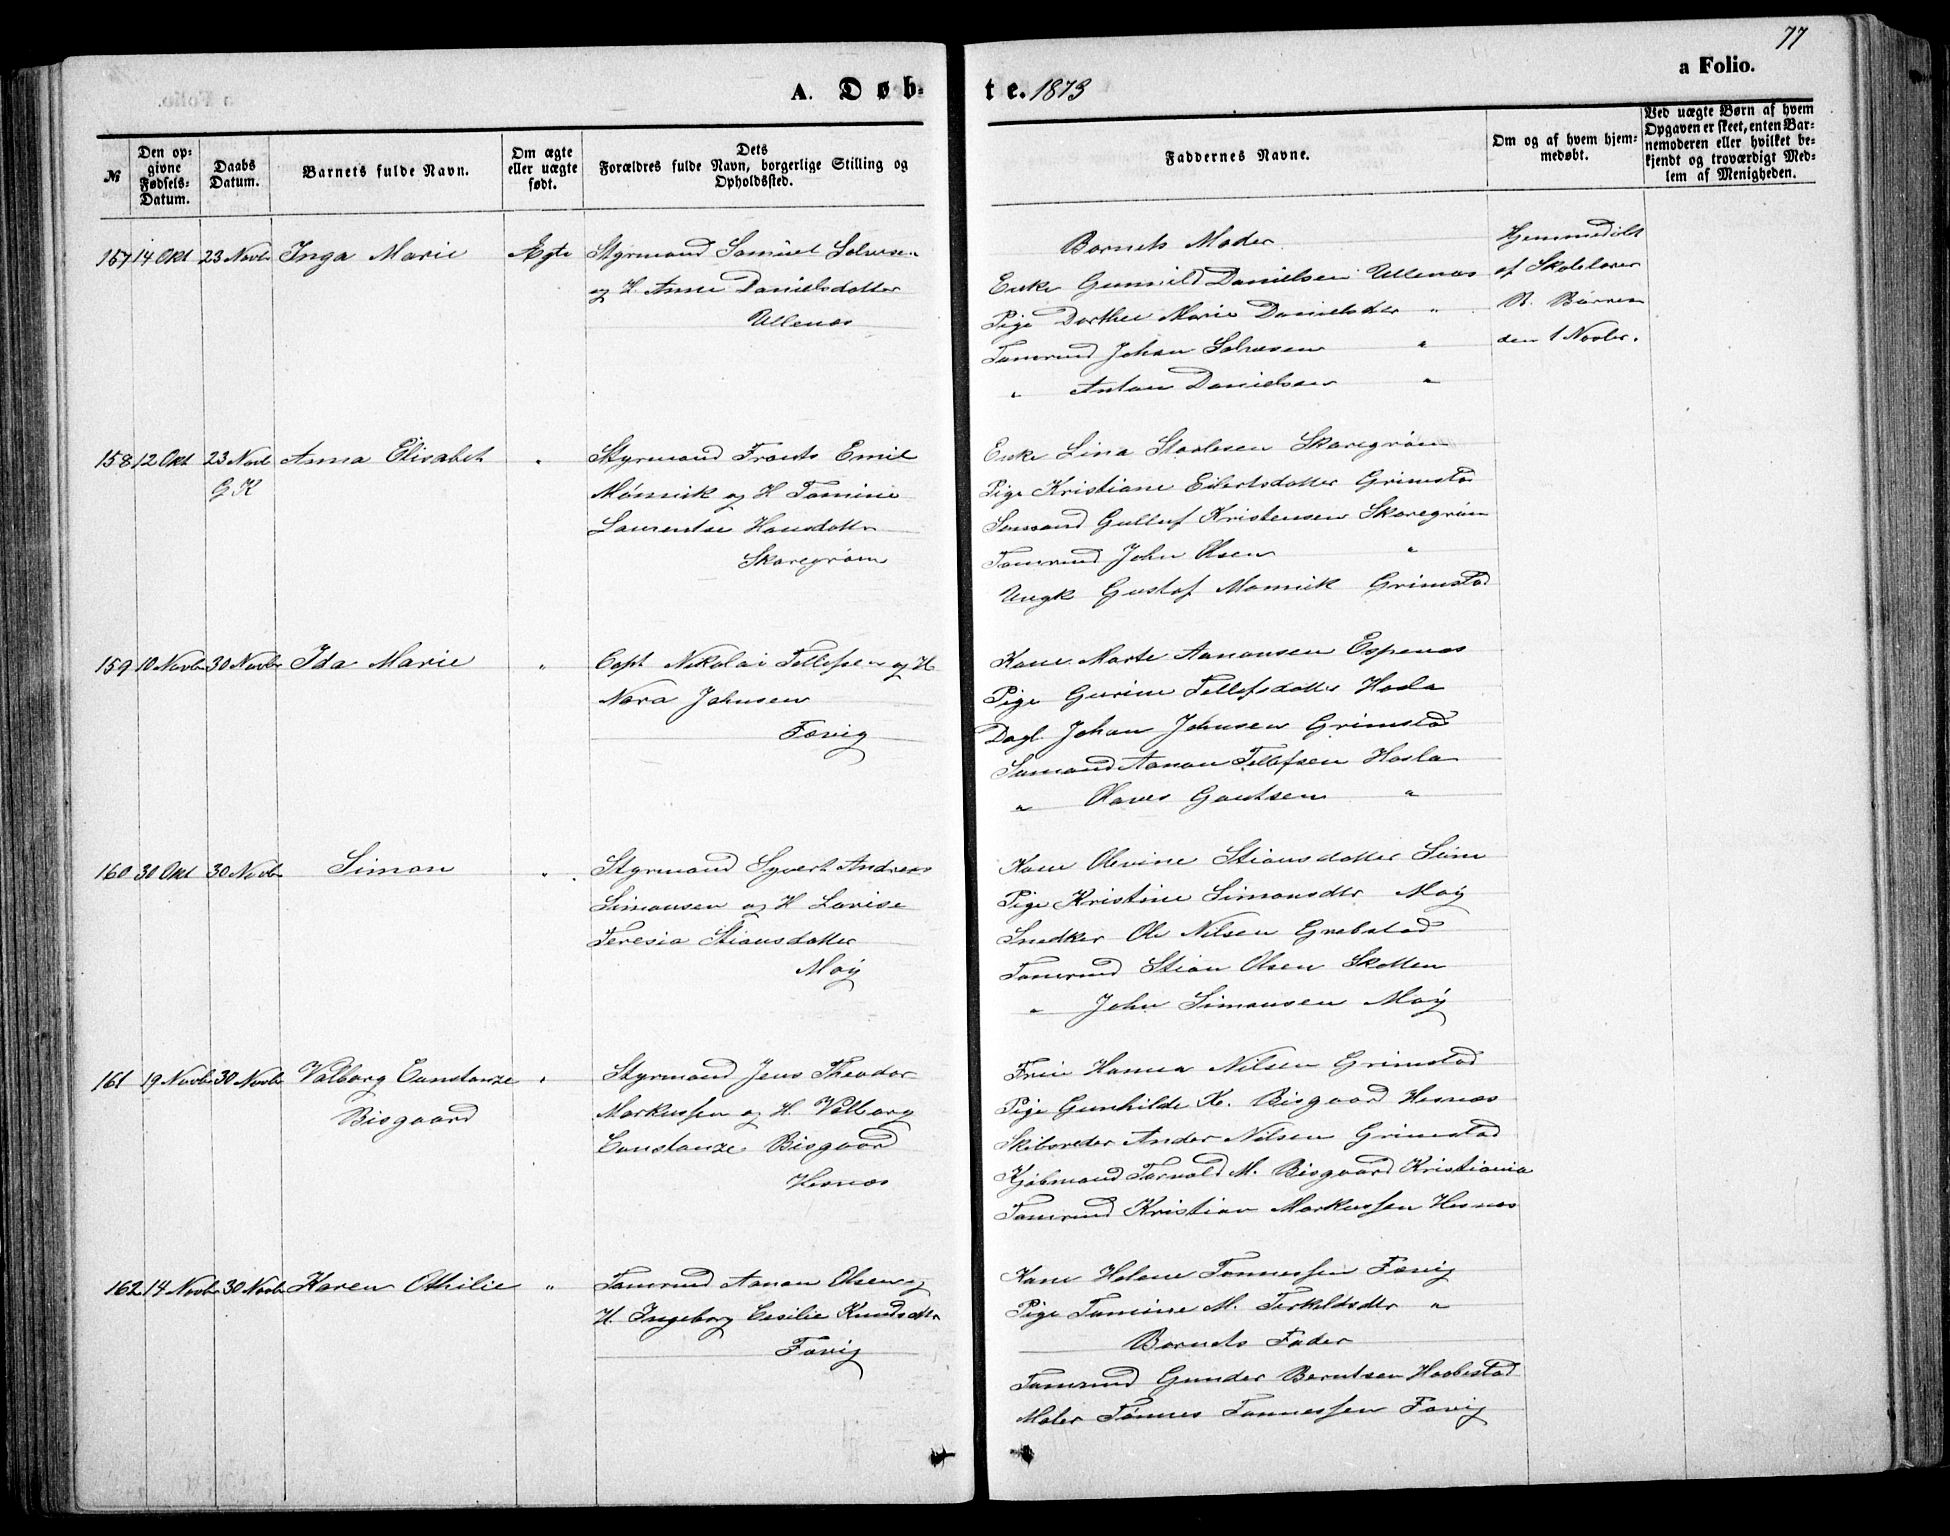 77
A. Døbte. 1873
a Folio.
№
Den opgivne Fødsels-Datum.
Daabs Datum.
Barnets fulde Navn.
Om ægte eller uægte født.
Dets Forældres fulde Navn, borgerlige Stilling og Opholdssted.
Faddernes Navne.
Om og af hvem hjemmedøbt.
Ved uægte Børn af hvem Opgaven er skeet, enten Barnemoderen eller hvilket bekjendt og troværdigt Medlem af Menigheden.
157 14 Okt 23 Novbr Inga Marie Ægte
Styrmand Samuel Salvesen
og H. Anne Danielsdatter
Ullenæs
Barnets Moder
Enke Gunnild Danielsen Ullenæs
Pige Dorthee Marie Danielsdtr "
Tømrmd Johan Salvesen "
" Anton Danielsen "
Hjemmedøbt
af Skolelærer
den 1 Novbr.
158 12 Okt 23 Novb Anna Elisabet "
G K
Styrmand Frants Emil
Mønnik og H Tomine
Laurentse Hansdattr
Skaregrøm
Enke Lina Skaregrøm
Pige Kristiane Eilertsdatter Grimstad
Sømand Gulluf Kristensen Skaregrøm
Tømrmd John Olsen "
Ungk Gustaf Mønnik Grimstad
159 10 Novbr 30 Novbr Ida Marie "
Capt Nikolai Tellefsen og H
Nora Johnsen
Fævig
Kone Marte Aanonsen Espenæs
Pige Gurine Tellefsdatter Hasla
Dagl. Johan Johnsen Grimstad
Sømand Aanon Tellefsen Hasla
" Olaves Gautsen "
160 31 Okt 30 Novbr Simon "
Styrmand Syvert Andreas
Simonsen og H Lovise
Teresia Stiansdatter
Moÿ
Kone Olevine Stiansdatter
Pige Kristine Simonsdtr Moÿ
Snedker Ole Nilsen Grøbstad
Tømrmd Stian Olsen Skotten
" John Simonsen Moÿ
161 19 Novbr 30 Novbr Valborg Constanze "
Bisgaard
Styrmand Jens Theodor
Markussen og H. Valborg
Constanze Bisgaard
Hesnæs
Frue Hanna Nilsen Grimstad
Pige Gunhilde K. Bisgaard Hesnæs
Skibsreder Ander Nilsen Grimstad
Kjøbmand Torvald M. Bisgaard Kristiania
Tømrmd Kristian Markussen Hesnæs
162 14 Novbr 30 Novbr Karen Othilie "
Tømrmd Aanon Olsen og
H. Ingeborg Cesilie Knudsdtr
Fævig
Kone Helene Tønnessen Fævig
Pige Tomine M. Terkeldsdtr "
Barnets Fader
Tømrmd Gunder Berntsen Haabestad
Maler Tønnes Tønnessen Fævig